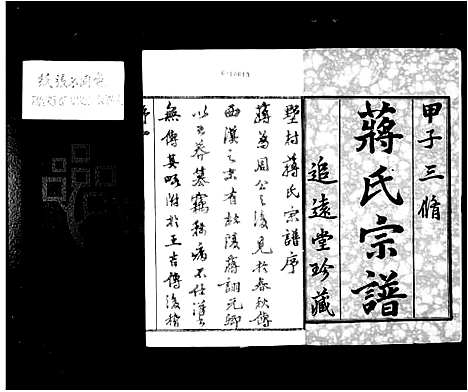 甲子三脩
蔣氏宗譜
追遠堂珍藏
墅村蔣氏宗譜序
蔣為周公之後見於春秋傳
西漢之末有杜陵蔣詡元卿
以王莽篡竊稱病不仕漢書
無傳其略附於王吉傳後稽
序一